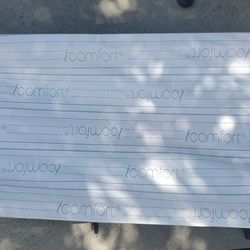 icomfort®
icomfort®
icomfort®
icomfort®
icomfort®
icomfort®
icomfort®
icomfort®
icomfort®
icomfort®